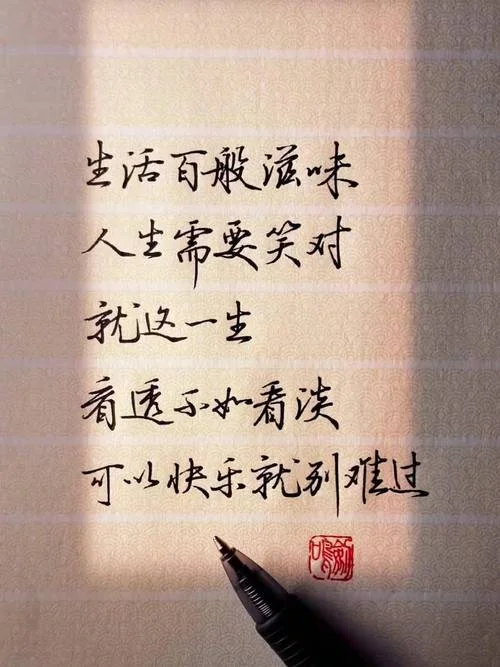 生活百般滋味
人生需要笑对
就这一生
看透不如看淡
可以快乐就别难过